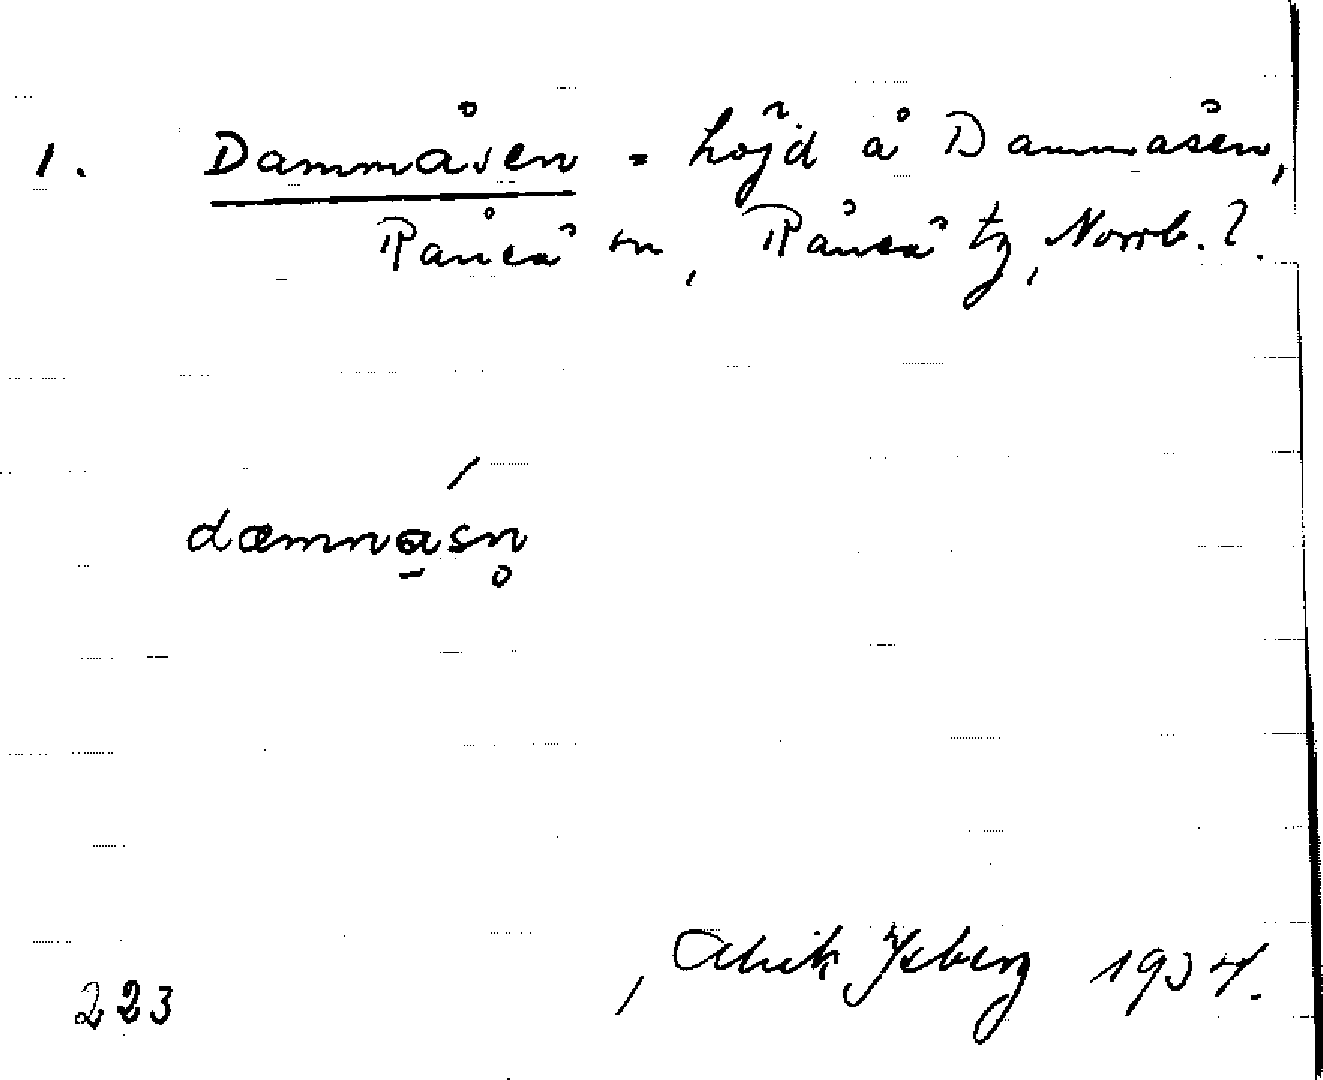 1. Dammåsen = höjd å Dammåsen,
Råneå sn, Råneå tg, Norrb. l.
dæmnåsn̥
223
Isberg 1934.